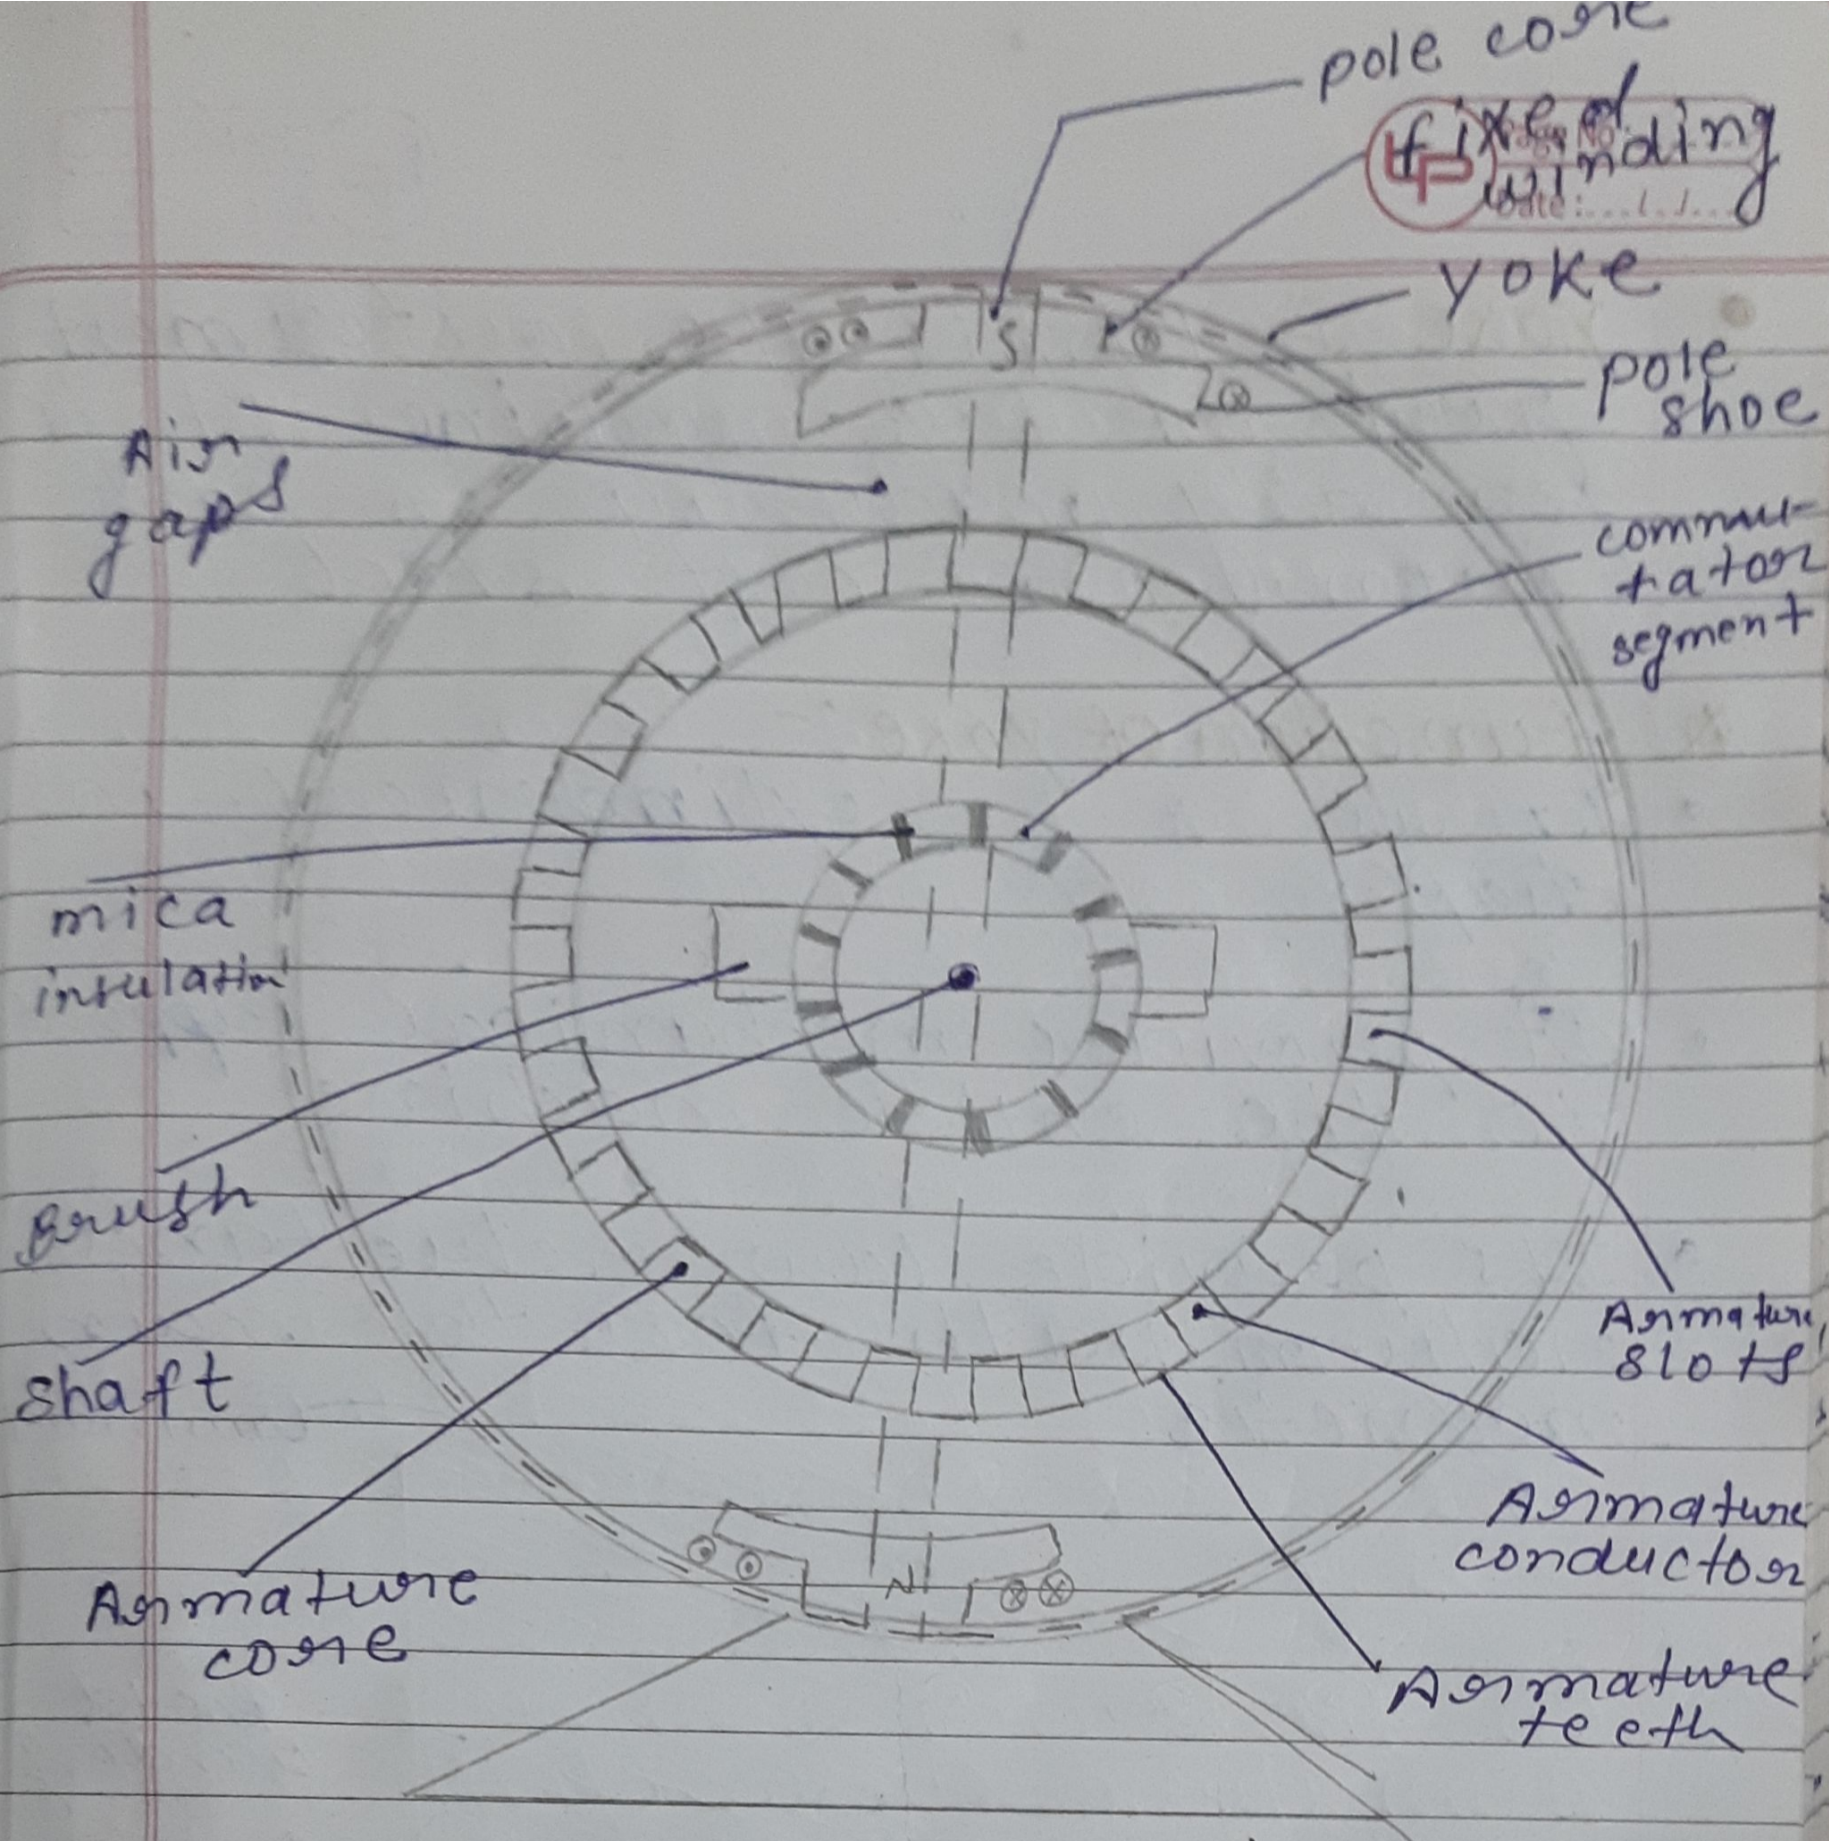 pole core
fixed
winding
Date:.../../...
yoke
pole
shoe
Air
gaps
S
commu-
tator
segment
mica
insulation
Brush
shaft
Armature
slots
Armature
conductor
Armature
core
N
Armature
teeth